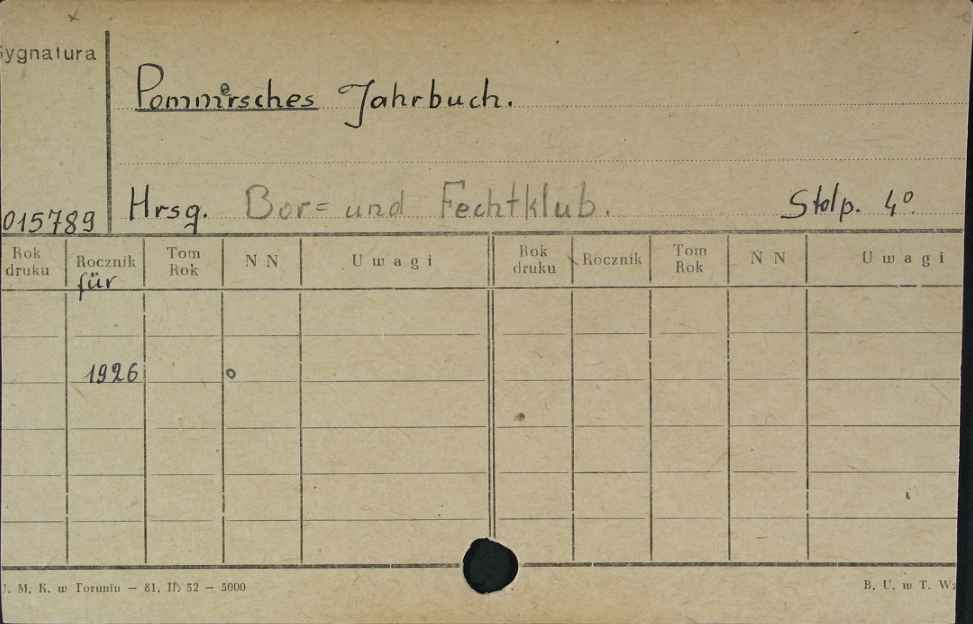 Sygnatura
Pommersches Jahrbuch.
015789
Hrsg. Bor= und Fechtklub. Stolp. 4°.
Rok druku Rocznik Tom Rok N N Uwagi Rok druku Rocznik Tom Rok N N Uwagi
für
1926 o
U. M. K. w Toruniu — 81, II) 52 — 5000
B. U. w T. Wz